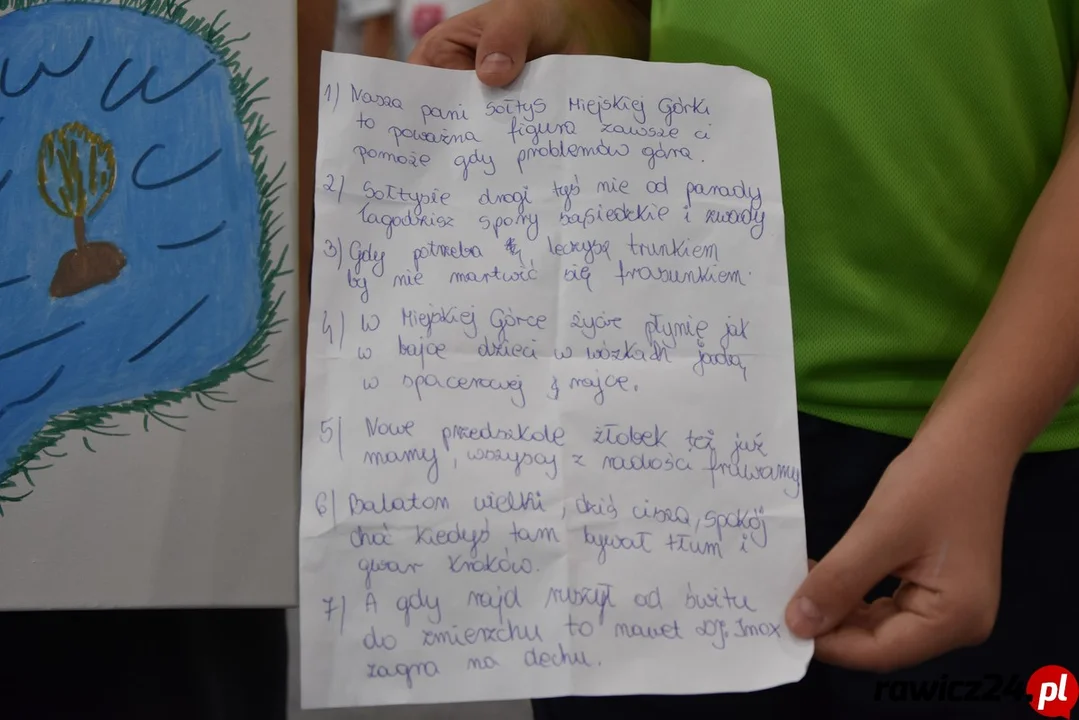 1) Nasza pani Sołtys Miejskiej Górki
to poważna figura zawsze ci
pomoże gdy problemów góra.
2) Sołtysie drogi tyś nie od parady
łagodzisz spory sąsiedzkie i zwady
3) Gdy potrzeba leczysz trunkiem
by nie martwić się frasunkiem.
4) W Miejskiej Górce życie płynie jak
w bajce dzieci w wózkach jadą,
w spacerowej rajce.
5) Nowe przedszkole żłobek też już
mamy, wszyscy z radości fruwamy
6) Balaton wielki, dziś cisza, spokój
choć kiedyś tam bywał tłum i
gwar kroków.
7) A gdy rajd ruszył od świtu
do zmierzchu to nawet Dj. Inox
zagra na dechu.
rawicz24.pl